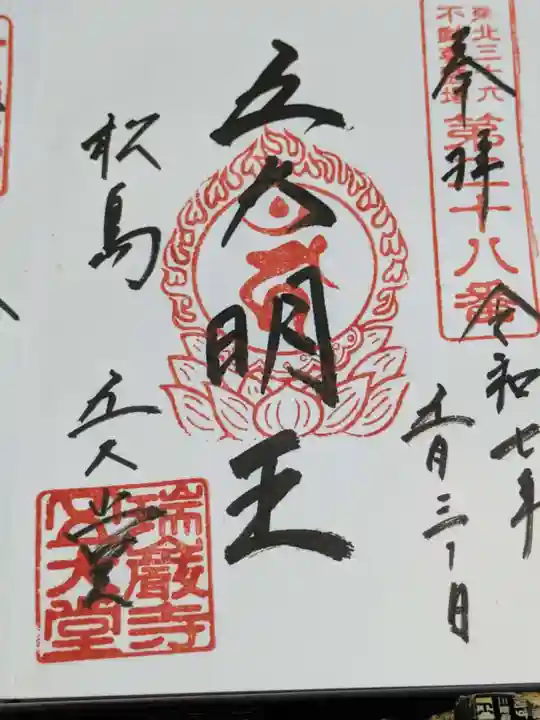 奉拝
東北三十六
不動尊霊場
第二十八番
令和七年
五月三十日
五大明王
松島
五大堂
瑞巌寺
五大堂